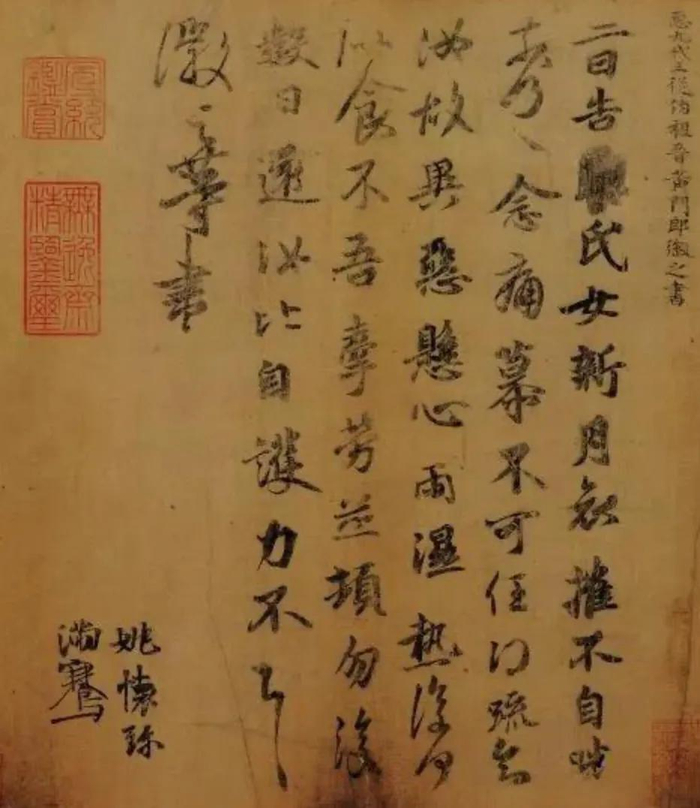 臣九代三從伯祖晉黃門郎徽之書
二日告氏女新月哀摧不自勝
奈何奈何念痛慕不可任得疏知
汝故異惡懸心雨濕熱復何
似食不吾牽勞並頓勿復
數日還汝比自護力不具
徽之等書
姚懷珍
滿騫
宣統鑒賞
無逸齋精鑒璽